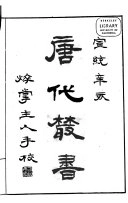 BERKELEY
LIBRARY
UNIVERSITY OF
CALIFORNIA
宣統辛亥
唐代叢書
焠掌主人手校